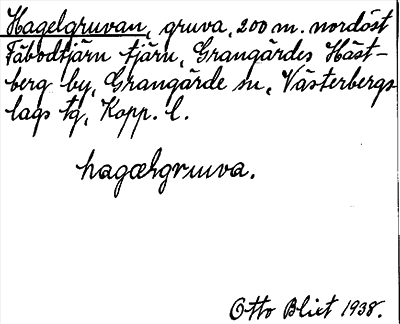 Hagelgruvan, gruva, 200 m. nordöst
Fäbodtjärn tjärn, Grangärdes Häst-
berg by, Grangärde sn, Västerbergs
lags tg, Kopp. l.
hagælgruuva.
Otto Blixt 1938.